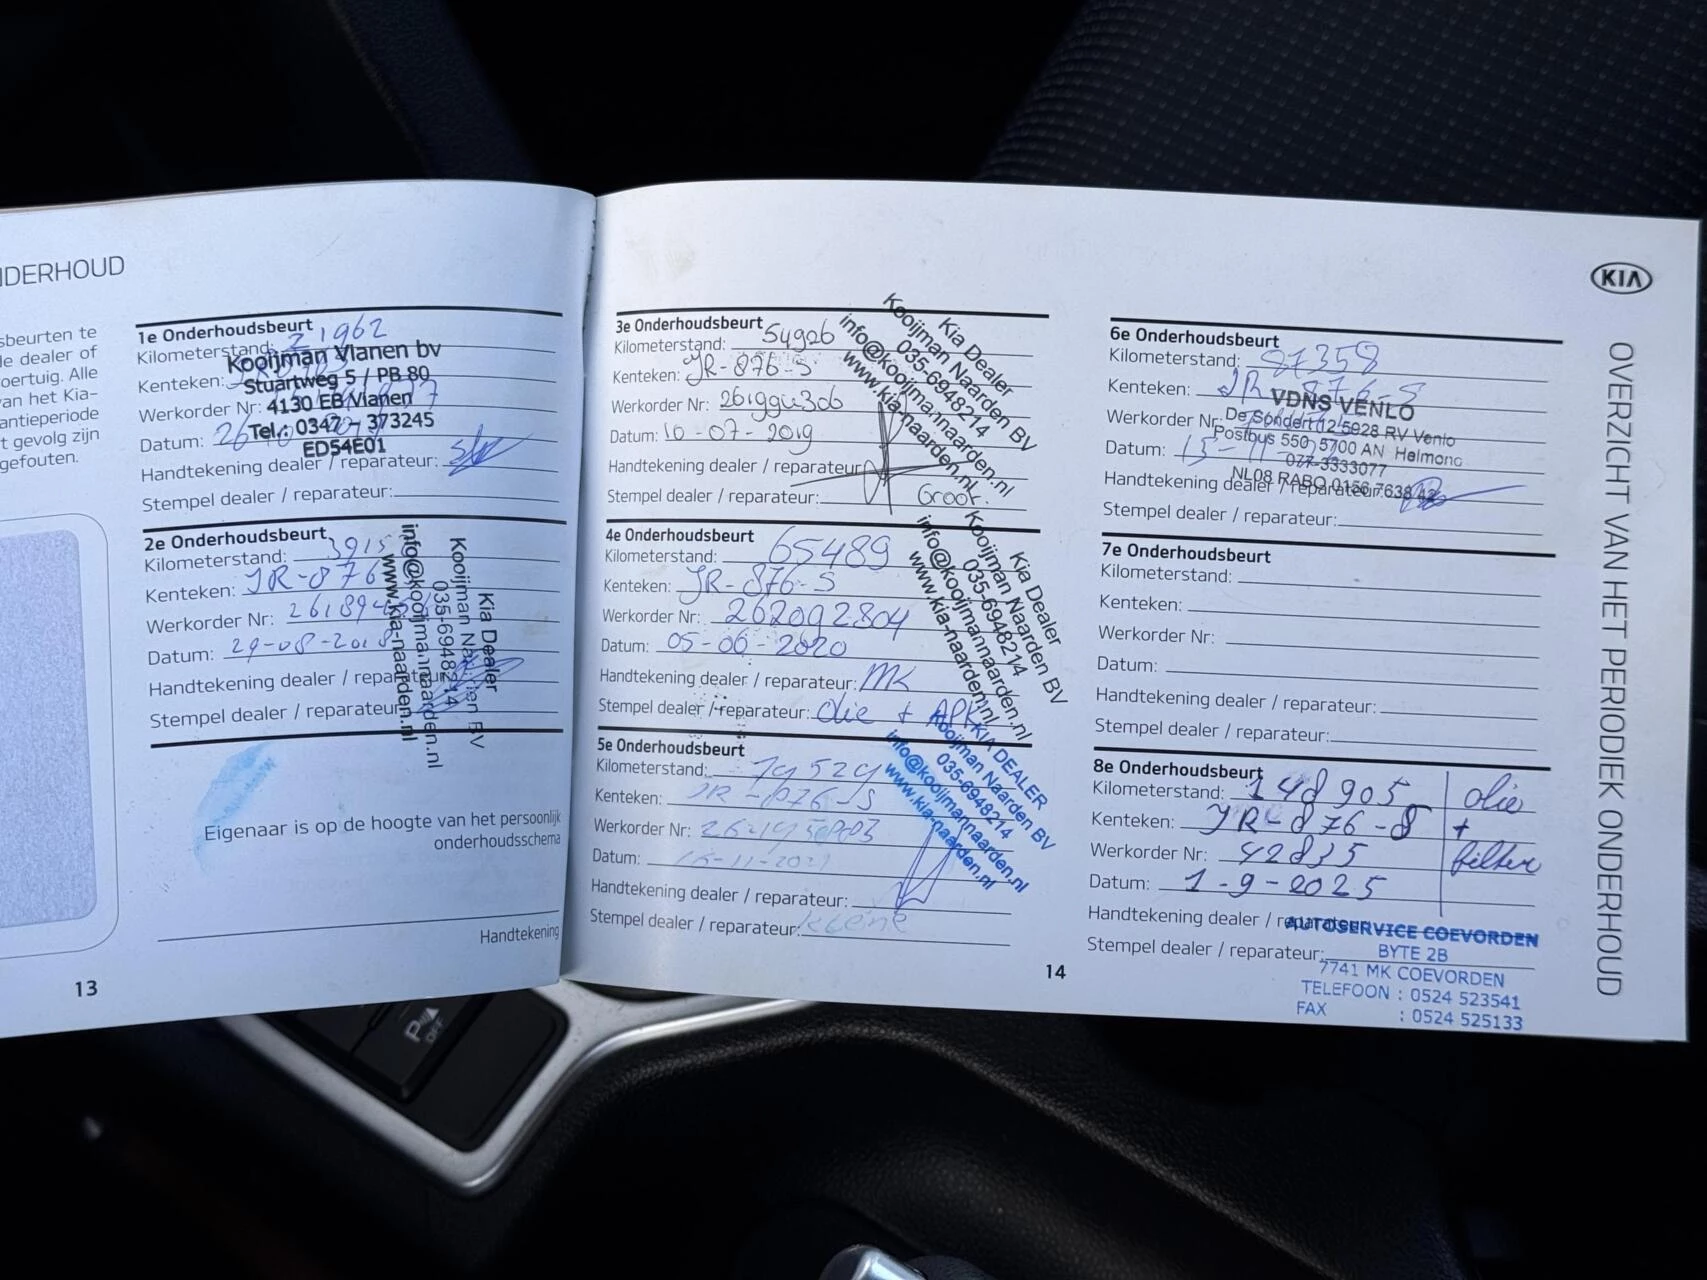 NDERHOUD
sbeurten te
le dealer of
oertuig. Alle
van het Kia-
antieperiode
t gevolg zijn
gefouten.
1e Onderhoudsbeurt
Kilometerstand: 21962
Kenteken:
Werkorder Nr:
Datum: 26
Handtekening dealer / reparateur:
Stempel dealer / reparateur:
Kooijman Vianen bv
Stuartweg 5 / PB 80
4130 EB Vianen
Tel.: 0347 - 373245
ED54E01
2e Onderhoudsbeurt
Kilometerstand: 3915
Kenteken: JR-876
Werkorder Nr: 26189
Datum: 29-08-2018
Handtekening dealer / reparateur
Stempel dealer / reparateur
Kia Dealer
Kooijman Naarden BV
035-6948214
info@kooijmannaarden.nl
www.kia-naarden.nl
Eigenaar is op de hoogte van het persoonlijk
onderhoudsschema
Handtekening
13
3e Onderhoudsbeurt
Kilometerstand: 54926
Kenteken: JR-876-S
Werkorder Nr:
Datum: 10-07-2019
Handtekening dealer / reparateur
Stempel dealer / reparateur: Groot.
Kia Dealer
Kooijman Naarden BV
035-6948214
info@kooijmannaarden.nl
www.kia-naarden.nl
4e Onderhoudsbeurt
Kilometerstand: 65489
Kenteken: JR-876-S
Werkorder Nr: 262092804
Datum: 05-06-2020
Handtekening dealer / reparateur: MK
Stempel dealer / reparateur: Olie + APK
Kia Dealer
Kooijman Naarden BV
035-6948214
info@kooijmannaarden.nl
www.kia-naarden.nl
5e Onderhoudsbeurt
Kilometerstand: 79529
Kenteken: JR-876-S
Werkorder Nr:
Datum: 16-11-2021
Handtekening dealer / reparateur:
Stempel dealer / reparateur: kleine
KIA DEALER
Kooijman Naarden BV
035-6948214
info@kooijmannaarden.nl
www.kia-naarden.nl
14
KIA
OVERZICHT VAN HET PERIODIEK ONDERHOUD
6e Onderhoudsbeurt
Kilometerstand: 97358
Kenteken: JR-876-S
Werkorder Nr:
Datum: 15-11-
Handtekening dealer / reparateur:
Stempel dealer / reparateur:
VDNS VENLO
De Sondert 12 5928 RV Venlo
Postbus 550, 5700 AN Helmond
077-3333077
NL08 RABO 0156 7638 42
7e Onderhoudsbeurt
Kilometerstand:
Kenteken:
Werkorder Nr:
Datum:
Handtekening dealer / reparateur:
Stempel dealer / reparateur:
8e Onderhoudsbeurt
Kilometerstand: 148905 olie
Kenteken: JR-876-S +
Werkorder Nr: 42835 filter
Datum: 1-9-2025
Handtekening dealer / reparateur
Stempel dealer / reparateur:
AUTOSERVICE COEVORDEN
BYTE 2B
7741 MK COEVORDEN
TELEFOON : 0524 523541
FAX : 0524 525133
P
OFF